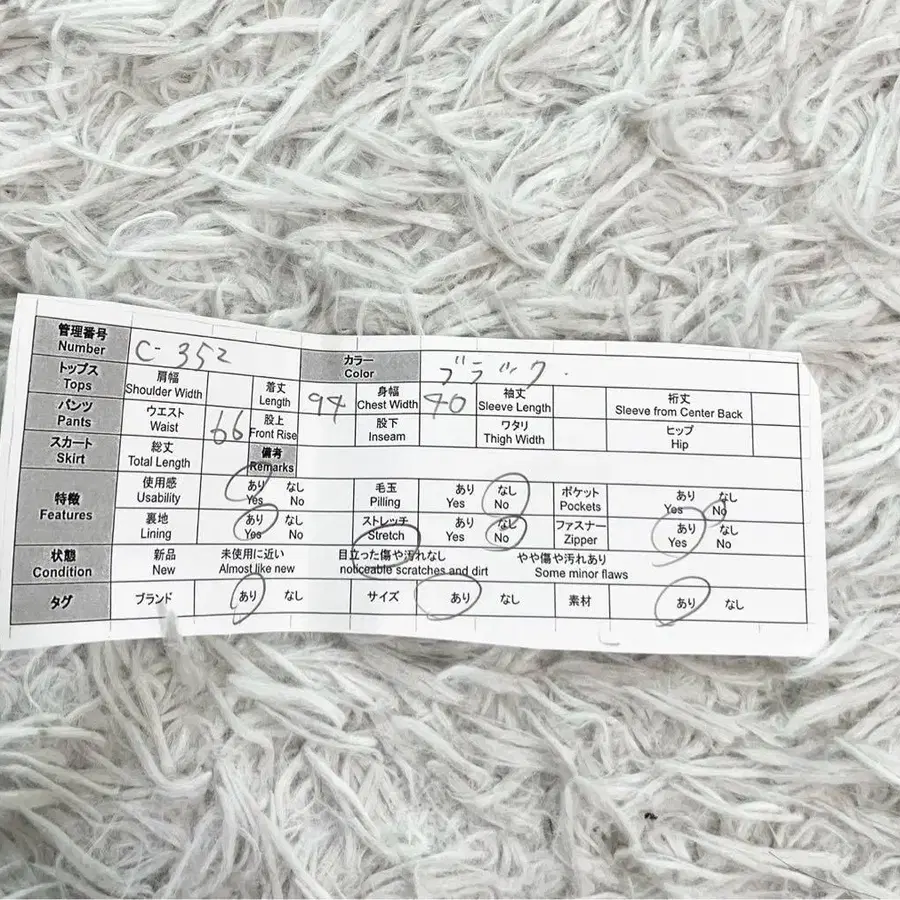 管理番号 Number C-352 カラー Color ブラック.
トップス Tops 肩幅 Shoulder Width 着丈 Length 94 身幅 Chest Width 40 袖丈 Sleeve Length 裄丈 Sleeve from Center Back
パンツ Pants ウエスト Waist 66 股上 Front Rise 股下 Inseam ワタリ Thigh Width ヒップ Hip
スカート Skirt 総丈 Total Length 備考 Remarks
特徴 Features 使用感 Usability あり Yes なし No 毛玉 Pilling あり Yes なし No ポケット Pockets あり Yes なし No
裏地 Lining あり Yes なし No ストレッチ Stretch あり Yes なし No ファスナー Zipper あり Yes なし No
状態 Condition 新品 New 未使用に近い Almost like new 目立った傷や汚れなし noticeable scratches and dirt やや傷や汚れあり Some minor flaws
タグ ブランド あり なし サイズ あり なし 素材 あり なし